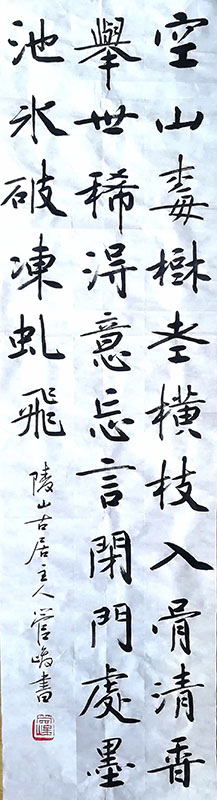 空山梅樹老橫枝入骨清香
舉世稀得意忘言閉門處墨
池氷破凍虬飛
陵山古居主人管書